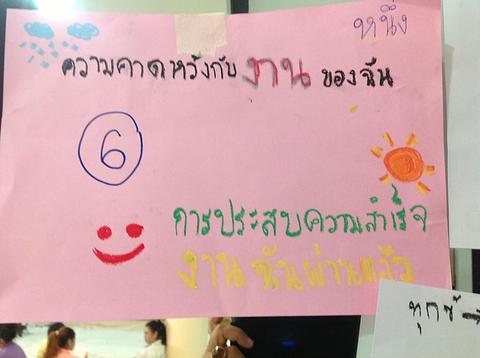 หนึ่ง
ความคาดหวังกับ งาน ของฉัน
6
การประสบความสำเร็จ
งาน ฉันผ่านแล้ว